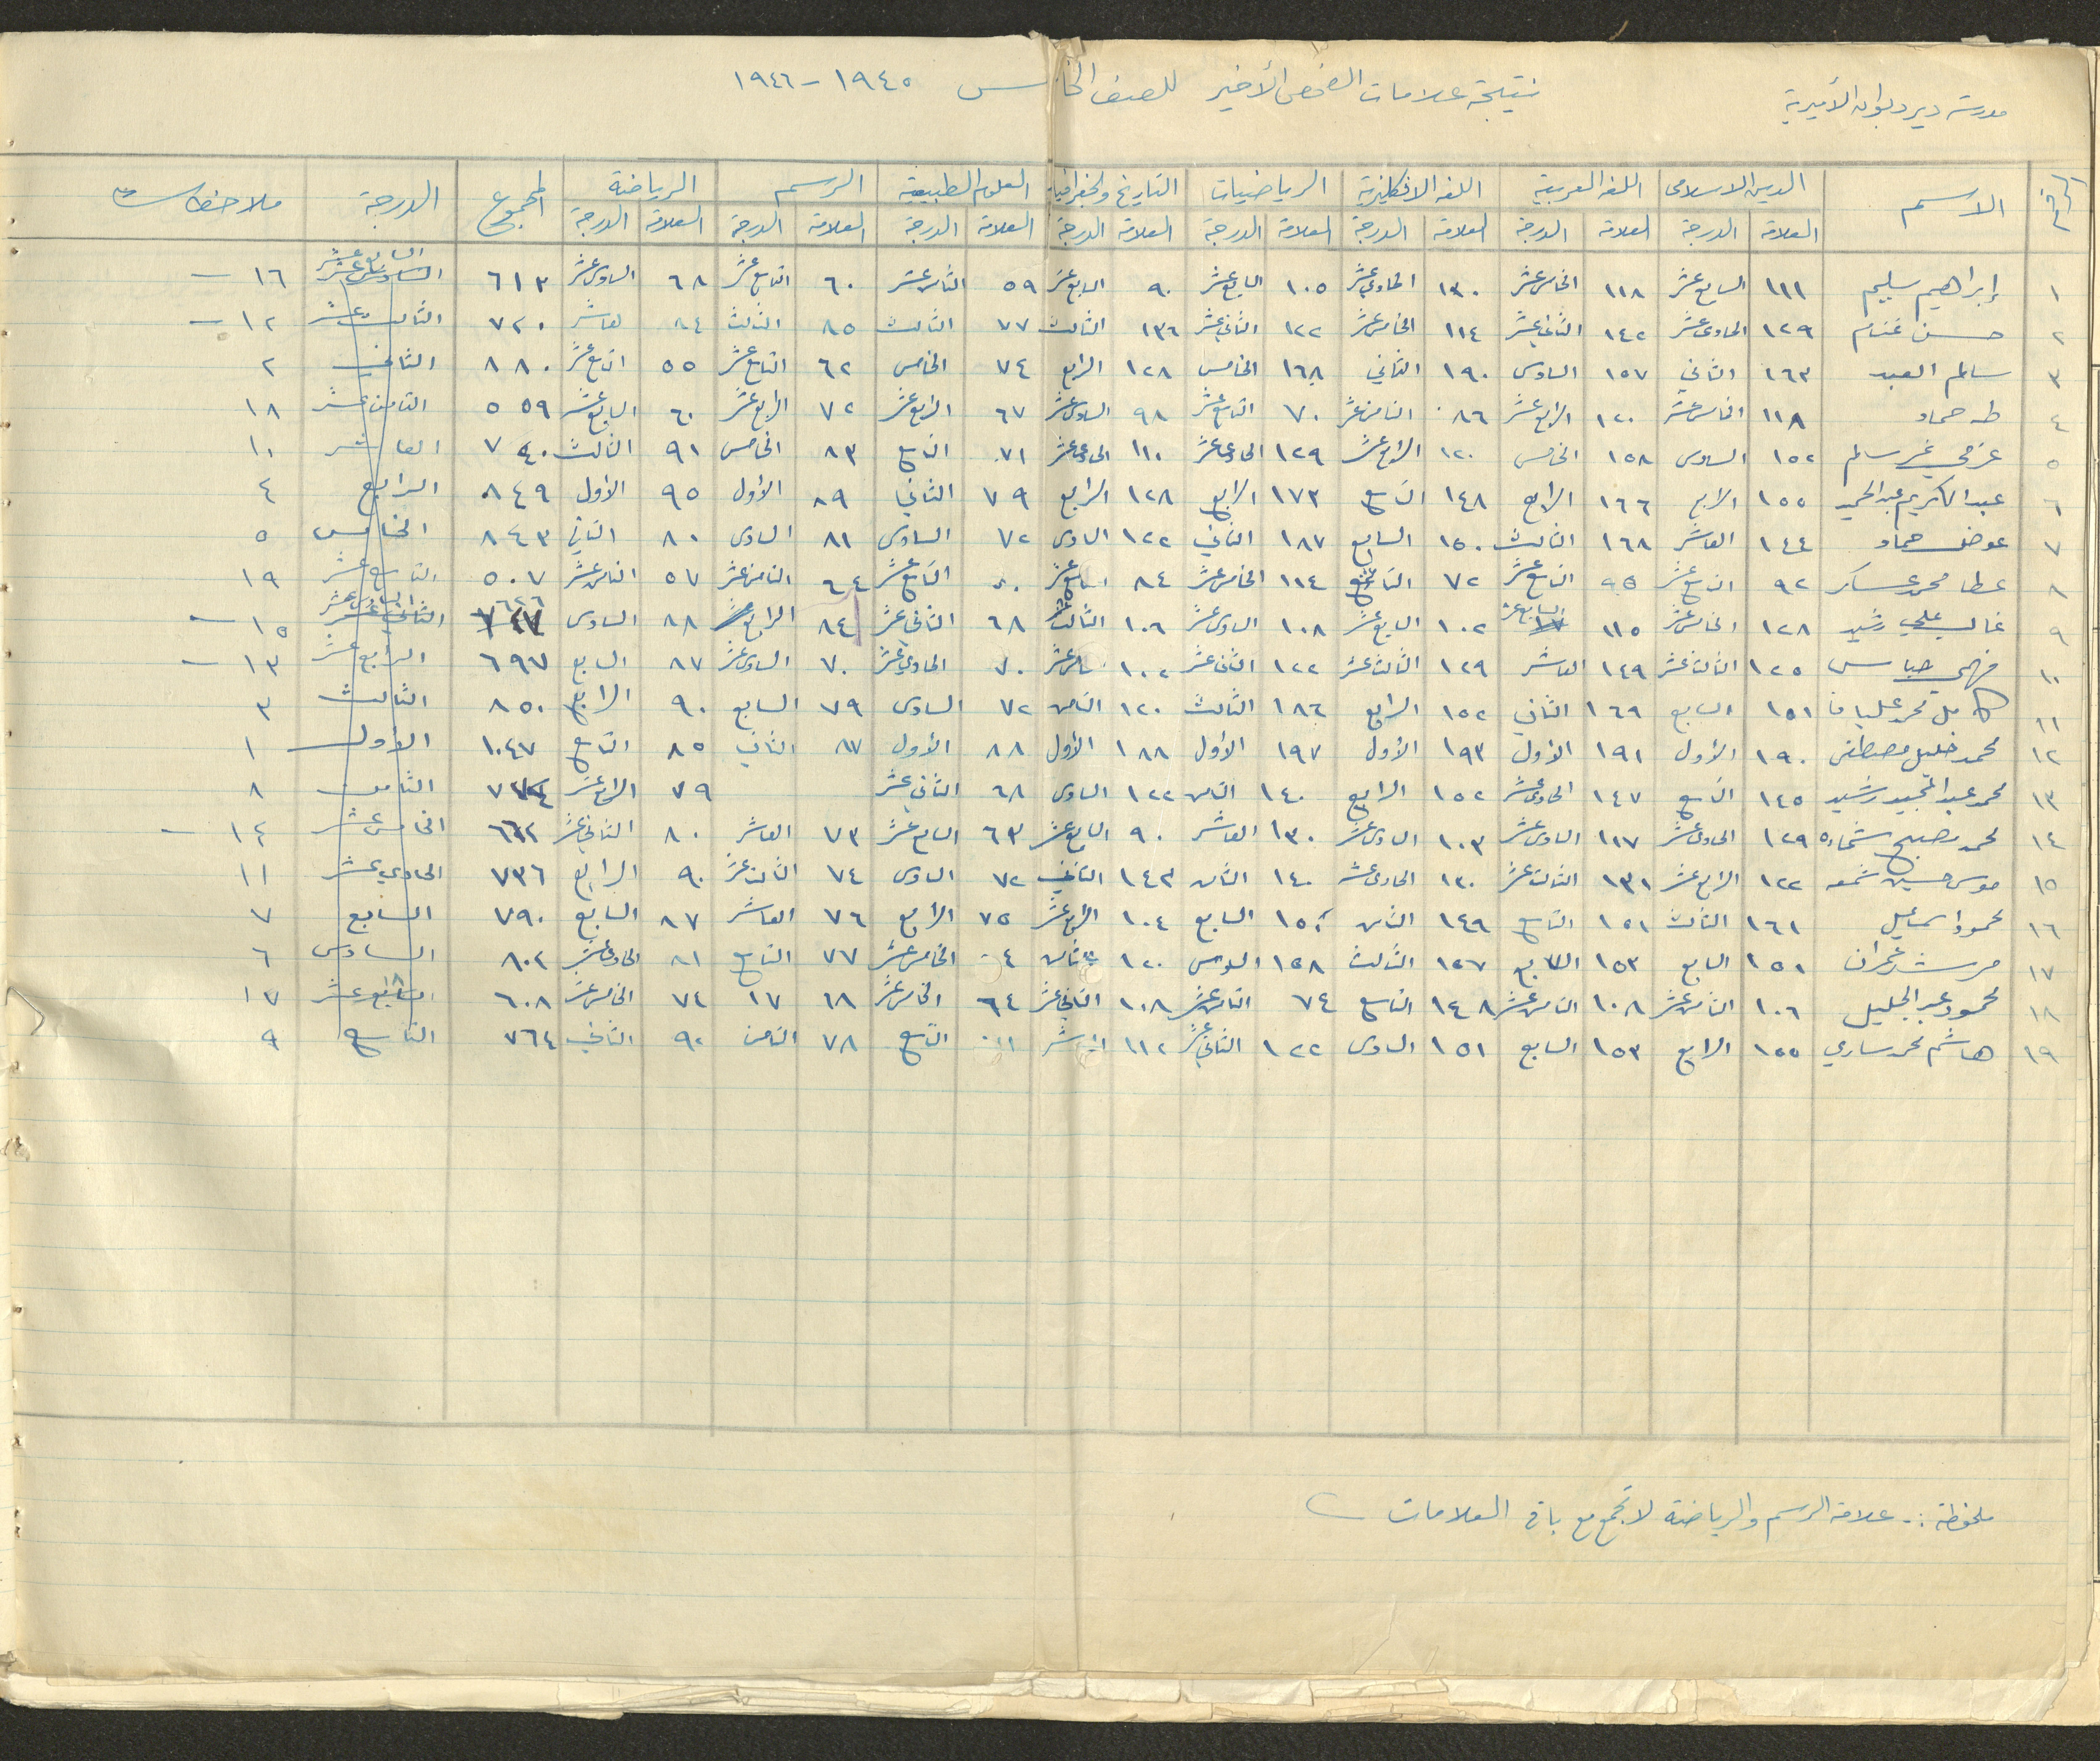 مدرسة دير ديوان الأميرية
نتيجة علامات الفحص الأخير للصف الخامس ١٩٤٥ - ١٩٤٦
الاسم الدين الاسلامي اللغة العربية اللغة الانكليزية الرياضيات التاريخ والجغرافيا العلوم الطبيعية الرسم الرياضة المجموع الدرجة ملاحظات
العلامة الدرجة العلامة الدرجة العلامة الدرجة العلامة الدرجة العلامة الدرجة العلامة الدرجة العلامة الدرجة العلامة الدرجة
١ إبراهيم سليم ١١١ السابع عشر ١١٨ الخامس عشر ١٣٠ الحادي عشر ١٠٥ السابع عشر ٩٠ السابع عشر ٥٩ الثامن عشر ٦٠ التاسع عشر ٦٨ السادس عشر ٦١٣ السابع عشر ١٦ -
٢ حسن غنام ١٢٩ الحادي عشر ١٤٢ الثاني عشر ١١٤ الخامس عشر ١٢٢ الثاني عشر ١٣٦ الثالث ٧٧ الثالث ٨٥ الثالث ٨٤ العاشر ٧٢٠ الثالث عشر ١٢ -
٣ سالم العبد ١٦٣ الثاني ١٥٧ السادس ١٩٠ الثاني ١٦٨ الخامس ١٢٨ الرابع ٧٤ الخامس ٦٢ التاسع عشر ٥٥ التاسع عشر ٨٨٠ الثاني ٢
٤ طه حماد ١١٨ الخامس عشر ١٢٠ الرابع عشر ٨٦ الثامن عشر ٧٠ التاسع عشر ٩٨ السادس عشر ٦٧ الرابع عشر ٧٢ الرابع عشر ٦٠ السابع عشر ٥٥٩ الثامن عشر ١٨
٥ عزمي سالم ١٥٢ السادس ١٥٨ الخامس ١٢٠ الرابع عشر ١٢٩ الحادي عشر ١١٠ الحادي عشر ٧١ التاسع ٨٣ الخامس ٩١ الثالث ٧٤٠ العاشر ١٠
٦ عبد الكريم عبد الحميد ١٥٥ الرابع ١٦٦ الرابع ١٤٨ التاسع ١٧٣ الرابع ١٢٨ الرابع ٧٩ الثاني ٨٩ الأول ٩٥ الأول ٨٤٩ الرابع ٤
٧ عوض حماد ١٤٤ العاشر ١٦٨ الثالث ١٥٠ السابع ١٨٧ الثاني ١٢٢ السادس ٧٢ السادس ٨١ السادس ٨٠ الثاني ٨٤٣ الخامس ٥
٨ عطا محمد عساكر ٩٢ التاسع عشر ٩٥ التاسع عشر ٧٢ التاسع عشر ١١٤ الخامس عشر ٨٤ التاسع عشر ٥٠ التاسع عشر ٦٤ الثامن عشر ٥٧ الثامن عشر ٥٠٧ التاسع عشر ١٩
٩ غالب علي رشيد ١٢٨ الخامس عشر ١١٥ السابع عشر ١٠٢ السابع عشر ١٠٨ السادس عشر ١٠٦ الثالث عشر ٦٨ الثاني عشر ٨٤ الرابع ٨٨ السادس ٦٢٦ السادس عشر ١٥ -
١٠ فهمي عباس ١٢٥ الثالث عشر ١٤٩ العاشر ١٢٩ الثالث عشر ١٢٢ الثاني عشر ١٠٢ عشر ٧٠ الحادي عشر ٧٠ السادس عشر ٨٧ السابع ٦٩٧ الرابع عشر ١٣ -
١١ كامل محمد عليان ١٥١ السابع ١٦٩ الثاني ١٥٢ الرابع ١٨٦ الثالث ١٢٠ الثامن ٧٢ السادس ٧٩ السابع ٩٠ الرابع ٨٥٠ الثالث ٣
١٢ محمد خليل مصطفى ١٩٠ الأول ١٩١ الأول ١٩٣ الأول ١٩٧ الأول ١٨٨ الأول ٨٨ الأول ٨٧ الثاني ٨٥ التاسع ١٠٤٧ الأول ١
١٣ محمد عبد المجيد رشيد ١٤٥ التاسع ١٤٧ الحادي عشر ١٥٢ الرابع ١٤٠ الثامن ١٢٢ السادس ٦٨ الثاني عشر ٧٩ الرابع عشر ٧٧٤ الثامن ٨
١٤ محمد مصبح شحاده ١٢٩ الحادي عشر ١١٧ السادس عشر ١٠٣ السادس عشر ١٣٠ العاشر ٩٠ السابع عشر ٦٣ السابع عشر ٧٣ العاشر ٨٠ الثاني عشر ٦٦٢ الخامس عشر ١٤ -
١٥ موسى حسين شمعه ١٢٢ الرابع عشر ١٣١ الثالث عشر ١٣٠ الحادي عشر ١٤٠ الثامن ١٤٣ الثاني ٧٢ السادس ٧٤ الثالث عشر ٩٠ الرابع ٧٣٦ الحادي عشر ١١
١٦ محمود اسماعيل ١٦١ الثالث ١٥١ التاسع ١٤٩ الثامن ١٥٤ السابع ١٠٤ الرابع عشر ٧٥ الرابع ٧٦ العاشر ٨٧ السابع ٧٩٠ السابع ٧
١٧ مرشد عمران ١٥١ السابع ١٥٣ السابع ١٥٧ الثالث ١٥٨ السادس ١٢٠ الثامن الخامس عشر ٧٧ التاسع ٨١ الحادي عشر ٨٠٢ السادس ٦
١٨ محمود عبد الجليل ١٠٦ الثامن عشر ١٠٨ الثامن عشر ١٤٨ التاسع ٧٤ الثامن عشر ١٠٨ الثاني عشر ٦٤ الخامس عشر ٦٨ ١٧ ٧٤ الخامس عشر ٦٠٨ السابع عشر ١٧
١٩ هاشم محمد ساري ١٥٥ الرابع ١٥٣ السابع ١٥١ السادس ١٢٢ الثاني عشر ١١٢ العاشر التاسع ٧٨ الثامن ٩٢ الثاني ٧٦٤ التاسع ٩
ملحوظة :- علامة الرسم والرياضة لا تجمع مع باقي العلامات